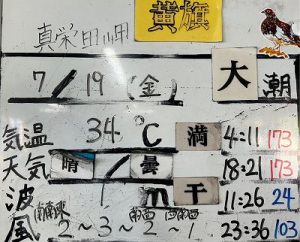 真栄田岬 黄旗
7/19(金) 大潮
気温 34℃ 満 4:11 173
天気 晴/曇 18:21 173
波 1m 干 11:26 24
南南東 南西 西南西
風 2~3~2~1 23:36 103